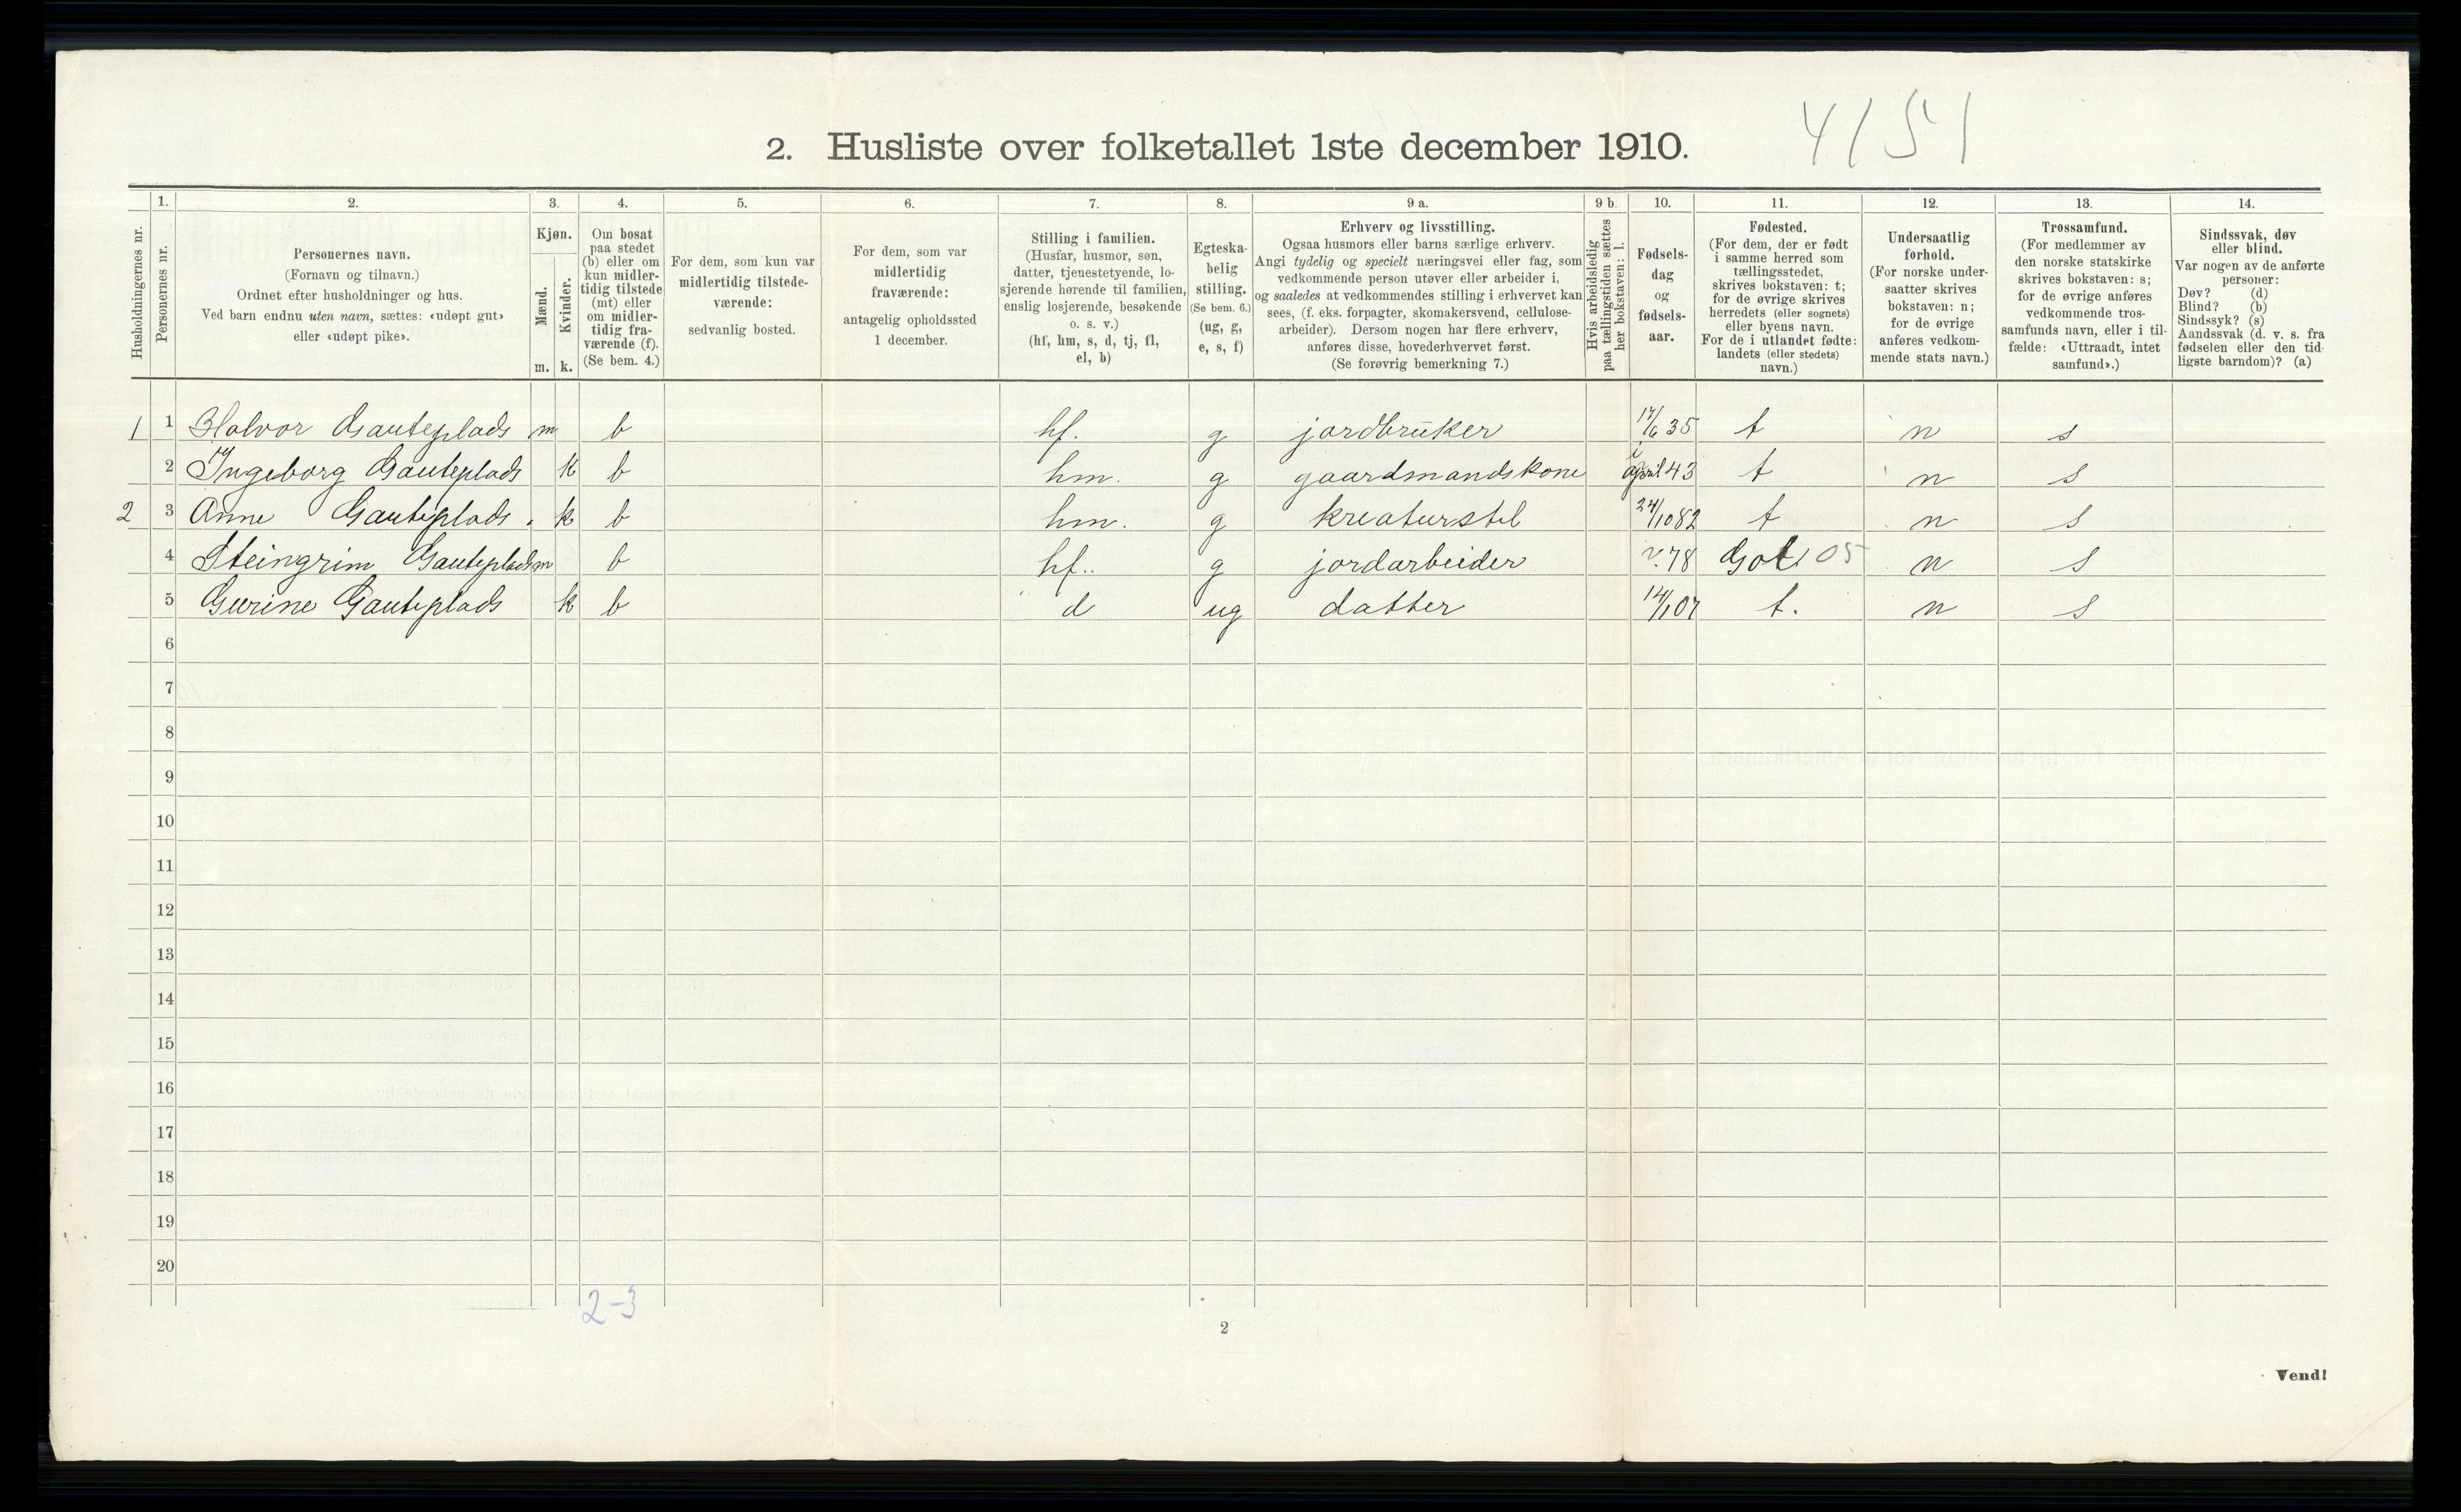 4151
2. Husliste over folketallet 1ste december 1910.
Husholdningernes nr.
1. Personernes nr.
2. Personernes navn. (Fornavn og tilnavn.) Ordnet efter husholdninger og hus. Ved barn endnu uten navn, sættes: «udøpt gut» eller «udøpt pike».
3. Kjøn. Mænd. m. Kvinder. k.
4. Om bosat paa stedet (b) eller om kun midlertidig tilstede (mt) eller om midlertidig fraværende (f). (Se bem. 4.)
5. For dem, som kun var midlertidig tilstedeværende: sedvanlig bosted.
6. For dem, som var midlertidig fraværende: antagelig opholdssted 1 december.
7. Stilling i familien. (Husfar, husmor, søn, datter, tjenestetyende, losjerende hørende til familien, enslig losjerende, besøkende o. s. v.) (hf, hm, s, d, tj, fl, el, b)
8. Egteskabelig stilling. (Se bem. 6.) (ug, g, e, s, f)
9 a. Erhverv og livsstilling. Ogsaa husmors eller barns særlige erhverv. Angi tydelig og specielt næringsvei eller fag, som vedkommende person utøver eller arbeider i, og saaledes at vedkommendes stilling i erhvervet kan sees, (f. eks. forpagter, skomakersvend, cellulosearbeider). Dersom nogen har flere erhverv, anføres disse, hovederhvervet først. (Se forøvrig bemerkning 7.)
9 b. Hvis arbeidsledig paa tællingstiden sættes her bokstaven: l.
10. Fødselsdag og fødselsaar.
11. Fødested. (For dem, der er født i samme herred som tællingsstedet, skrives bokstaven: t; for de øvrige skrives herredets (eller sognets) eller byens navn. For de i utlandet fødte: landets (eller stedets) navn.)
12. Undersaatlig forhold. (For norske undersaatter skrives bokstaven: n; for de øvrige anføres vedkommende stats navn.)
13. Trossamfund. (For medlemmer av den norske statskirke skrives bokstaven: s; for de øvrige anføres vedkommende trossamfunds navn, eller i tilfælde: «Uttraadt, intet samfund».)
14. Sindssvak, døv eller blind. Var nogen av de anførte personer: Døv? (d) Blind? (b) Sindssyk? (s) Aandssvak (d. v. s. fra fødselen eller den tidligste barndom)? (a)
1 1 Halvor Gauteplads m b hf. g jordbruker 17/6 35 t n s
2 Ingeborg Gauteplads k b hm. g gaardmandskone i april 43 t n s
2 3 Anne Gauteplads. k b hm. g kreaturstel 24/10 82 t n s
4 Steingrim Gauteplads m b hf.. g jordarbeider 78 Gol 05 n s
5 Gurine Gauteplads k b d ug datter 14/1 07 t. n s
6
7
8
9
10
11
12
13
14
15
16
17
18
19
20
2-3
2
Vend!